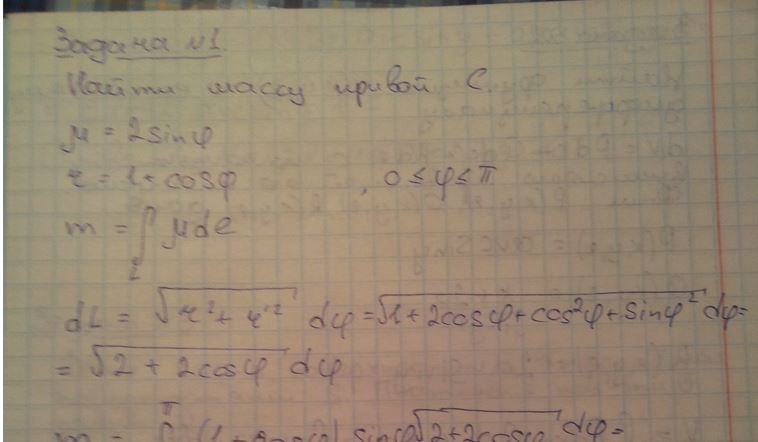 Задача №1.
Найти массу кривой С.
μ = 2sinφ
r = 1 + cosφ , 0 ≤ φ ≤ π
m = ∫ μ dl
L
dL = √r² + r'² dφ = √1 + 2cosφ + cos²φ + sinφ² dφ =
= √2 + 2cosφ dφ
π
sinφ√2+2cosφ dφ =